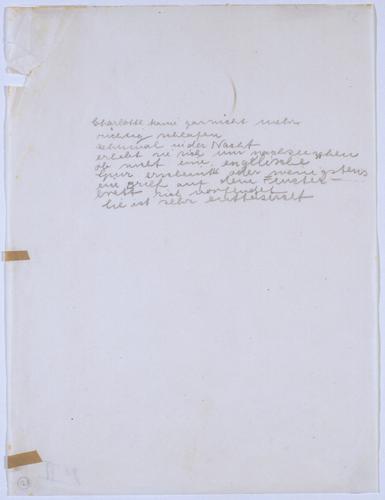 Charlotte kann gar nicht mehr
richtig schlafen
zehnmal in der Nacht
erhebt sie sich um nachzusehen
ob nicht eine englische
Spur erscheint oder wenigstens
ein Brief auf dem Fenster-
brett sich vorfindet
Sie ist sehr